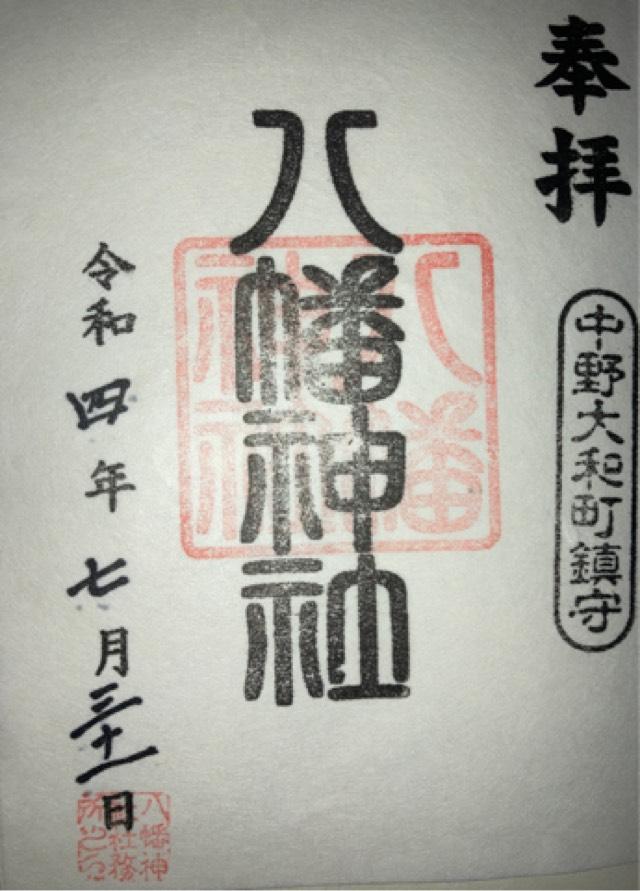 奉拝
中野大和町鎮守
八幡神社
八幡
神社
令和四年七月三十一日
八幡神
社務
所之印